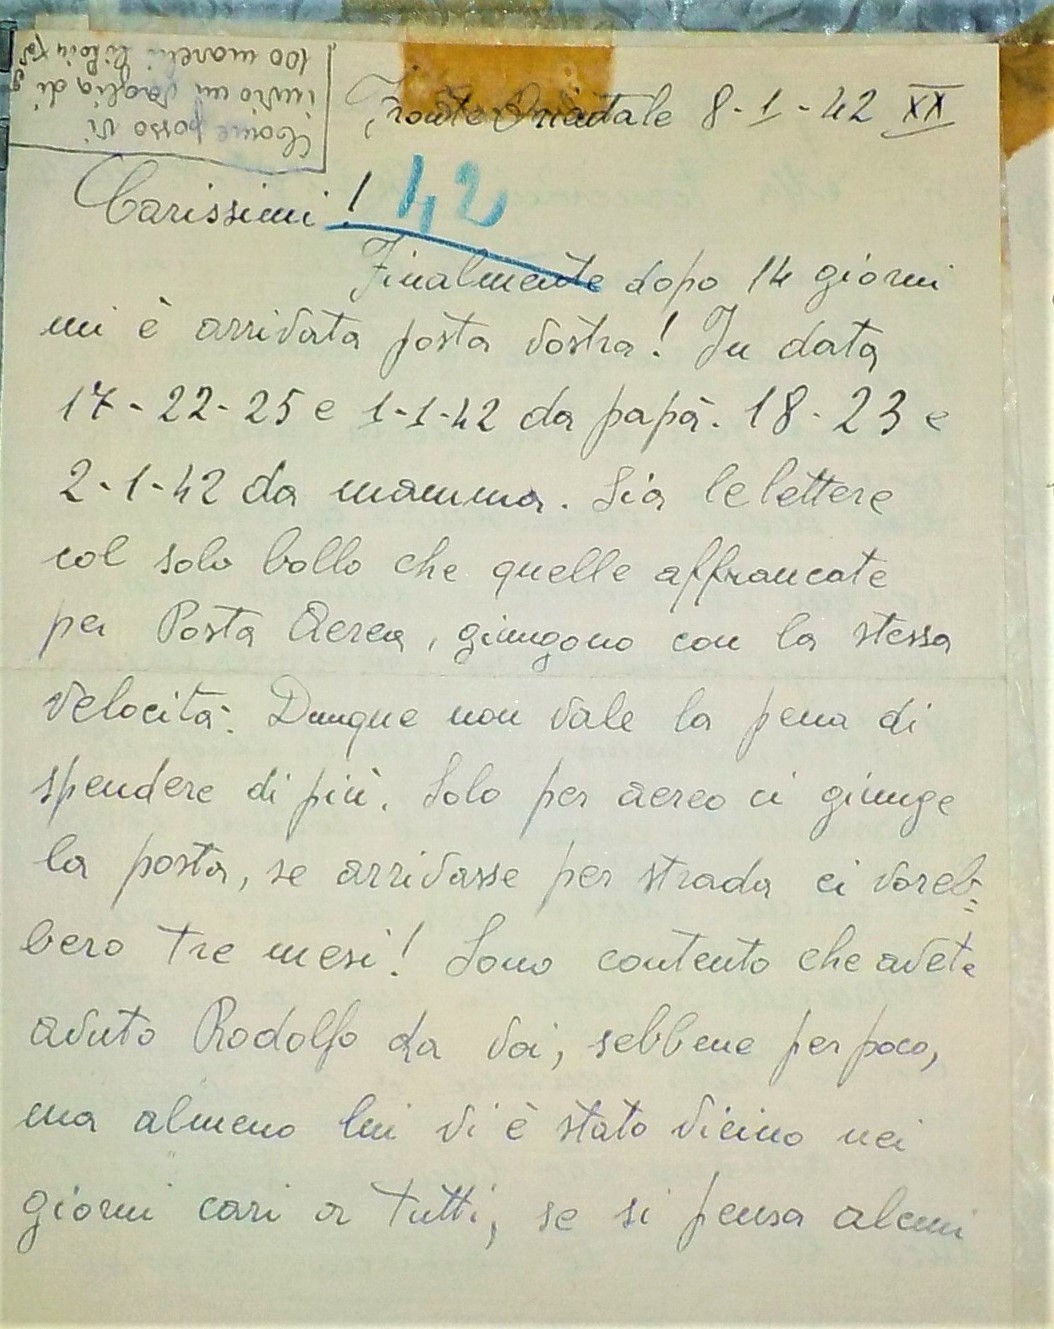 Come posso vi
invio un vaglia di
100 marchi
Fronte Orientale 8-1-42 XX
Carissimi!
42
Finalmente dopo 14 giorni
mi è arrivata posta vostra! In data
17-22-25 e 1-1-42 da papà. 18-23 e
2-1-42 da mamma. Sia le lettere
col solo bollo che quelle affrancate
per Posta Aerea, giungono con la stessa
velocità. Dunque non vale la pena di
spendere di più. Solo per aereo ci giunge
la posta, se arrivasse per strada ci voreb=
bero tre mesi! Sono contento che avete
avuto Rodolfo da voi, sebbene per poco,
ma almeno lui vi è stato vicino nei
giorni cari a tutti, se si pensa alcuni